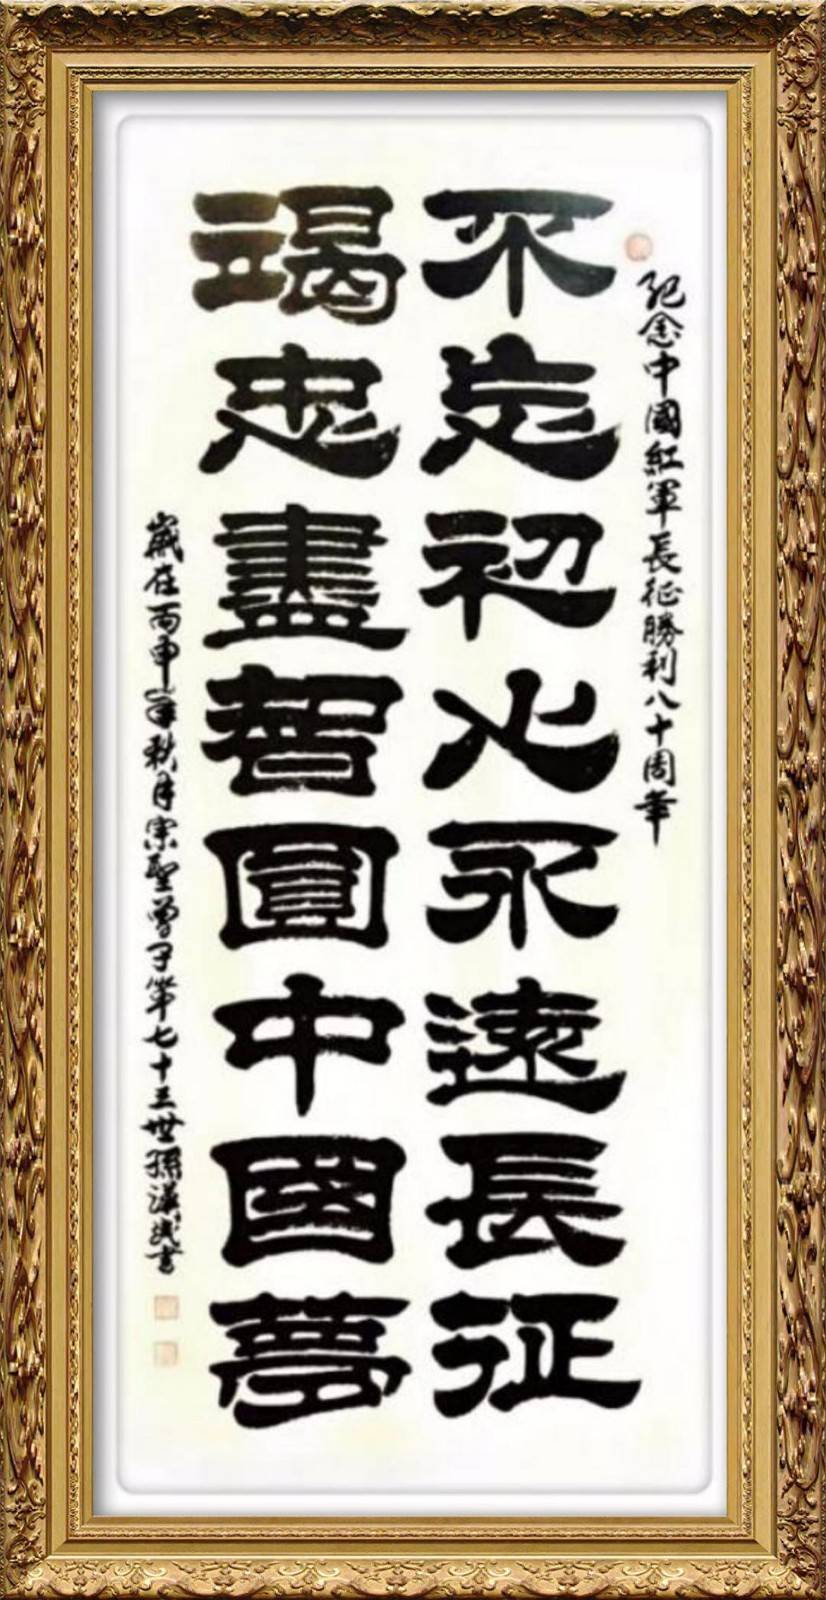 紀念中國紅軍長征勝利八十周年
不忘初心永遠長征
竭忠盡智圓中國夢
歲在丙申年秋月宗聖曾子第七十三世孫漢書